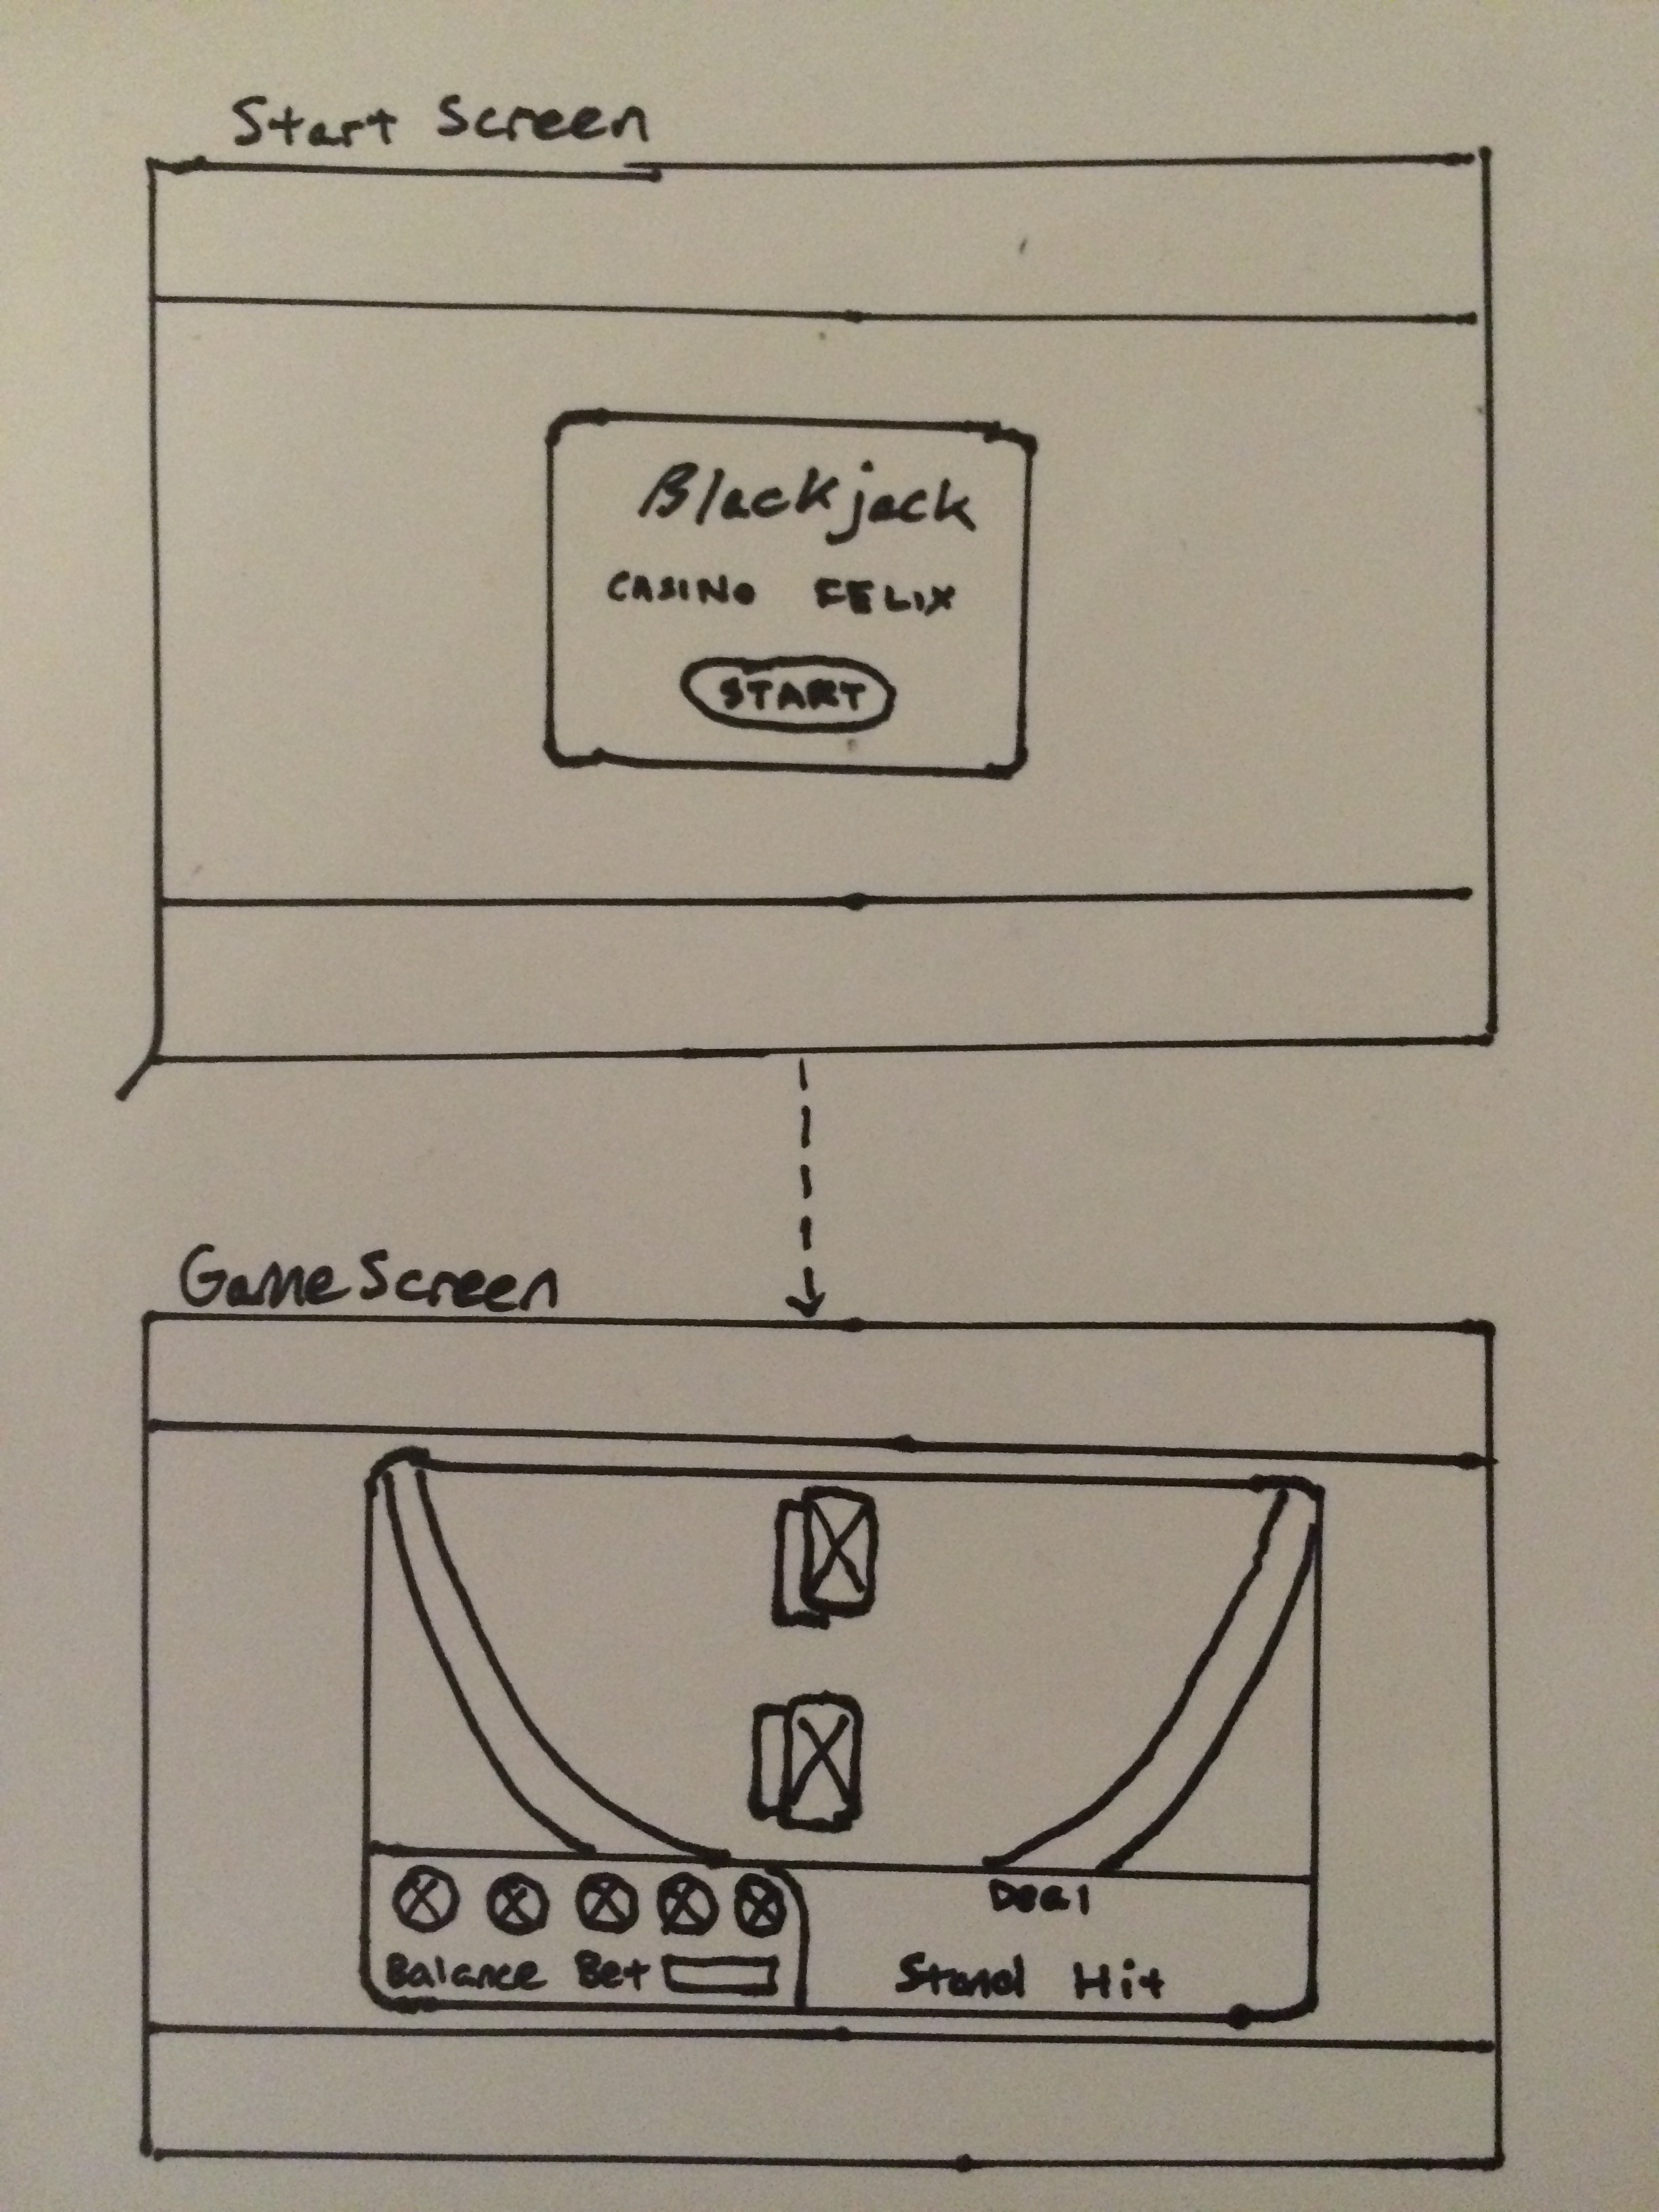 Start Screen
Blackjack
CASINO FELIX
START
Game Screen
Deal
Balance Bet
Stand Hit